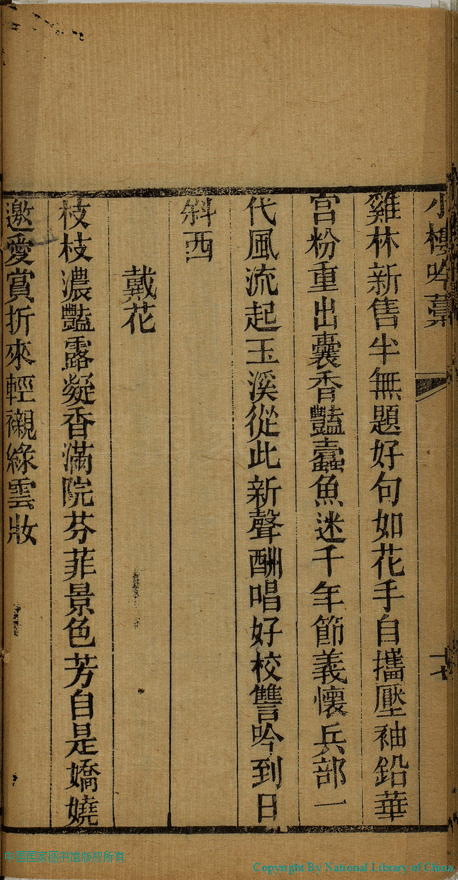 小樓吟藁
十七
雞林新售半無題好句如花手自攜壓袖鉛華
宮粉重出囊香豔蠹魚迷千年節義懷兵部一
代風流起玉溪從此新聲酬唱好校讐吟到日
斜西
戴花
枝枝濃豔露凝香滿院芬菲景色芳自是嬌嬈
邀愛賞折來輕襯綠雲妝
Copyright By National Library of China